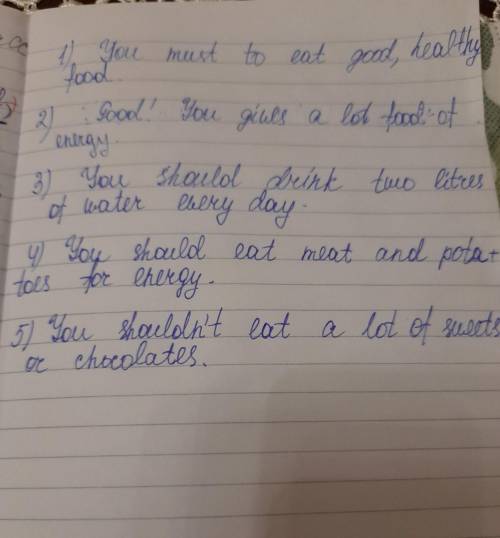 1) You must to eat good, healthy
food.
2) : Good! You gives a lot food: of
energy.
3) You should drink two litres
of water every day.
4) You should eat meat and pota-
toes for energy.
5) You shouldn't eat a lot of sweets
or chocolates.